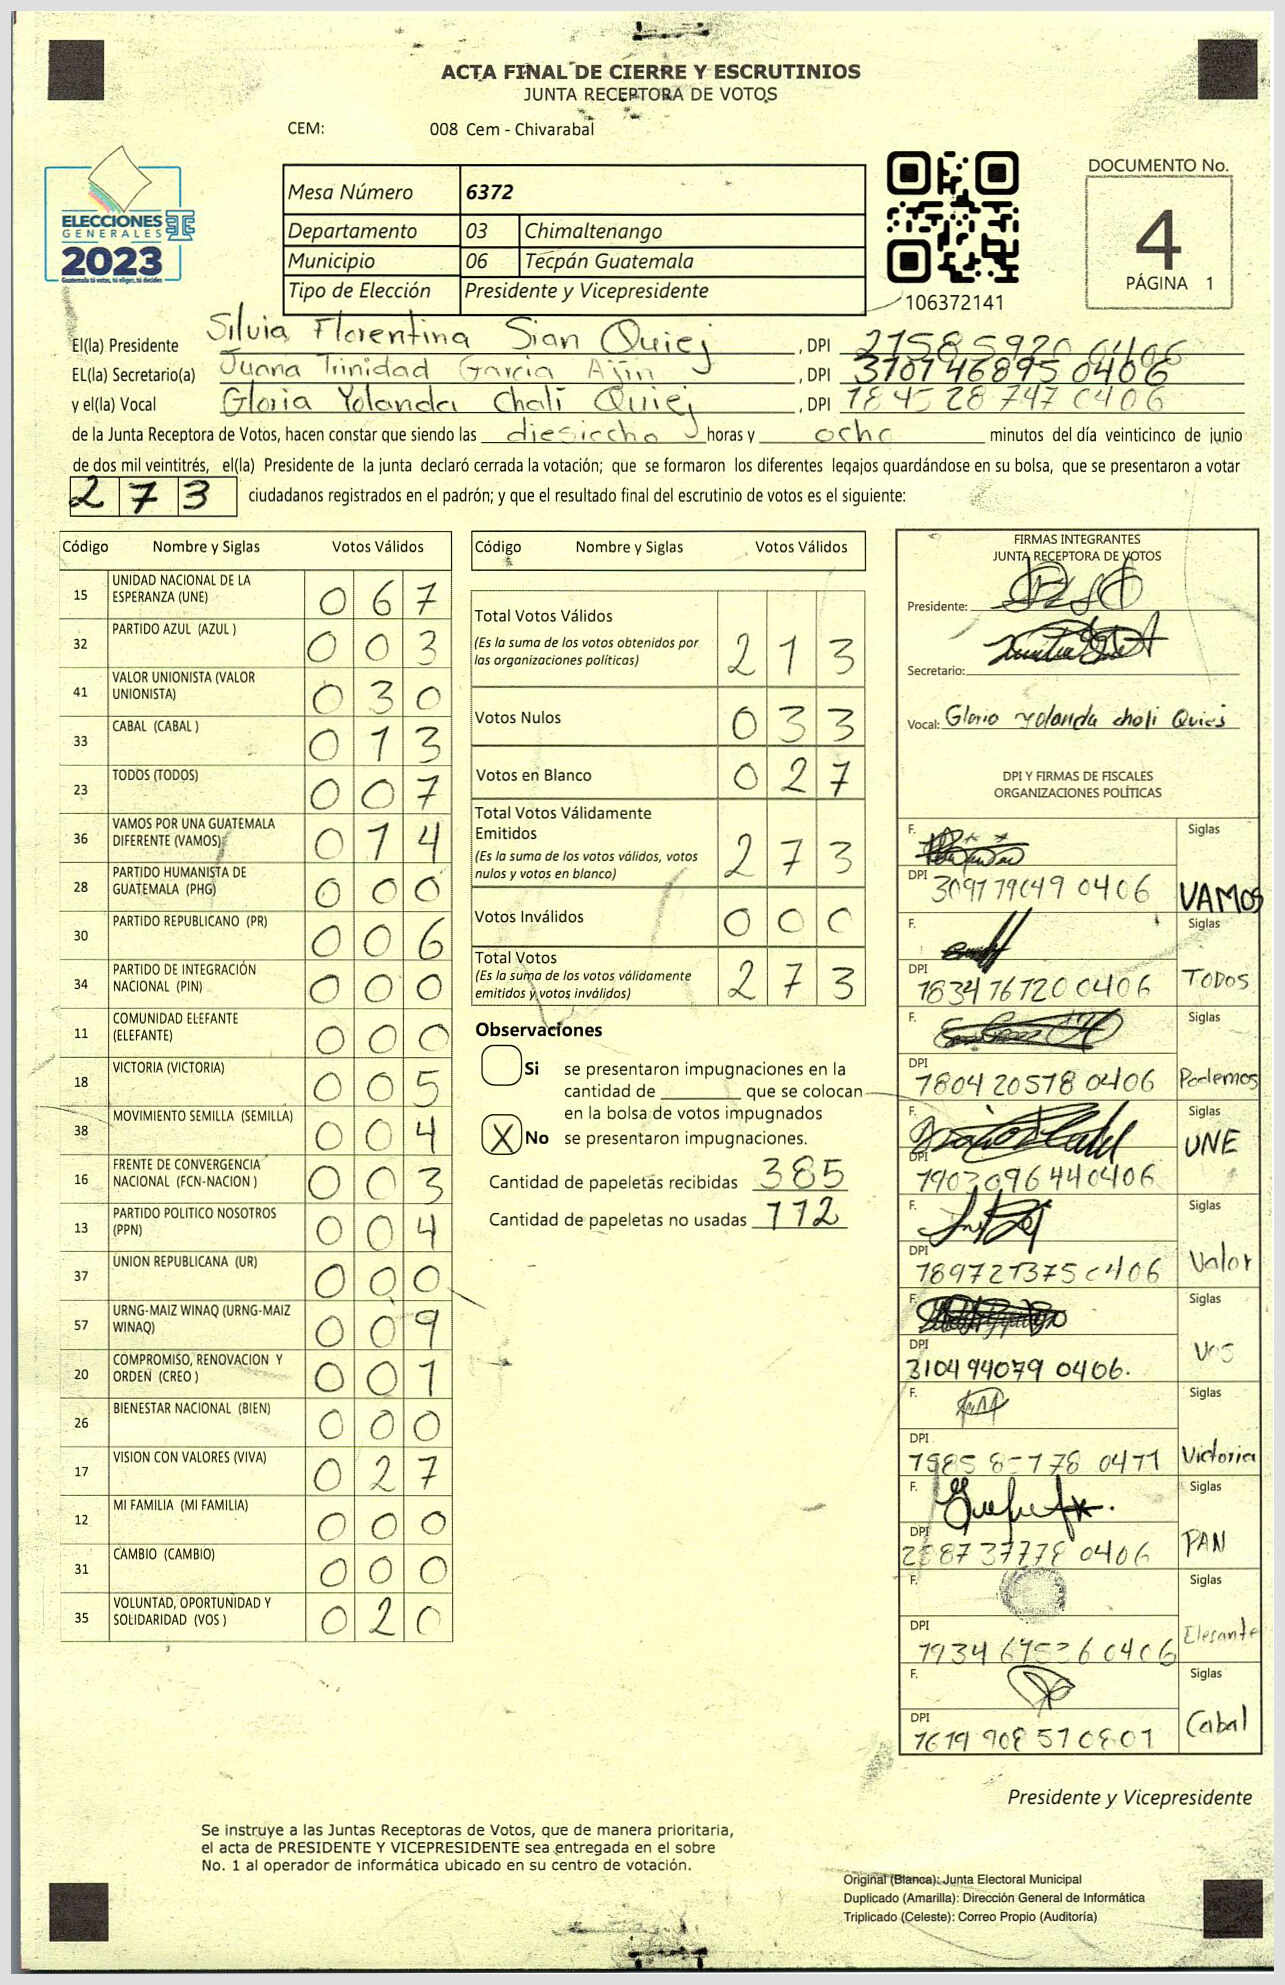 ACTA FINAL DE CIERRE Y ESCRUTINIOS
JUNTA RECEPTORA DE VOTOS
CEM: 008 Cem - Chivarabal
ELECCIONES
GENERALES
2023
Guatemala tú votas, tú eliges, tú decides
Mesa Número 6372
Departamento 03 Chimaltenango
Municipio 06 Tecpán Guatemala
Tipo de Elección Presidente y Vicepresidente
106372141
DOCUMENTO No.
4
PÁGINA 1
El(la) Presidente Silvia Florentina Sian Quiej, DPI
EL(la) Secretario(a) Juana Trinidad Garcia Ajin, DPI 3701468950406
y el(la) Vocal Gloria Yolanda Chalí Quiej, DPI
de la Junta Receptora de Votos, hacen constar que siendo las diesiocho horas y ocho minutos del día veinticinco de junio
de dos mil veintitrés, el(la) Presidente de la junta declaró cerrada la votación; que se formaron los diferentes legajos guardándose en su bolsa, que se presentaron a votar
273 ciudadanos registrados en el padrón; y que el resultado final del escrutinio de votos es el siguiente:
Código Nombre y Siglas Votos Válidos
15 UNIDAD NACIONAL DE LA ESPERANZA (UNE) 067
32 PARTIDO AZUL (AZUL ) 003
41 VALOR UNIONISTA (VALOR UNIONISTA) 030
33 CABAL (CABAL ) 013
23 TODOS (TODOS) 007
36 VAMOS POR UNA GUATEMALA DIFERENTE (VAMOS) 014
28 PARTIDO HUMANISTA DE GUATEMALA (PHG) 000
30 PARTIDO REPUBLICANO (PR) 006
34 PARTIDO DE INTEGRACIÓN NACIONAL (PIN) 000
11 COMUNIDAD ELEFANTE (ELEFANTE) 000
18 VICTORIA (VICTORIA) 005
38 MOVIMIENTO SEMILLA (SEMILLA) 004
16 FRENTE DE CONVERGENCIA NACIONAL (FCN-NACION ) 003
13 PARTIDO POLITICO NOSOTROS (PPN) 004
37 UNION REPUBLICANA (UR) 000
57 URNG-MAIZ WINAQ (URNG-MAIZ WINAQ) 009
20 COMPROMISO, RENOVACION Y ORDEN (CREO ) 001
26 BIENESTAR NACIONAL (BIEN) 000
17 VISION CON VALORES (VIVA) 027
12 MI FAMILIA (MI FAMILIA) 000
31 CAMBIO (CAMBIO) 000
35 VOLUNTAD, OPORTUNIDAD Y SOLIDARIDAD (VOS ) 020
Código Nombre y Siglas Votos Válidos
Total Votos Válidos 213
(Es la suma de los votos obtenidos por
las organizaciones políticas)
Votos Nulos 033
Votos en Blanco 027
Total Votos Válidamente
Emitidos 273
(Es la suma de los votos válidos, votos
nulos y votos en blanco)
Votos Inválidos 000
Total Votos 273
(Es la suma de los votos válidamente
emitidos y votos inválidos)
Observaciones
Si se presentaron impugnaciones en la
cantidad de ________ que se colocan
en la bolsa de votos impugnados
X No se presentaron impugnaciones.
Cantidad de papeletas recibidas 385
Cantidad de papeletas no usadas 112
FIRMAS INTEGRANTES
JUNTA RECEPTORA DE VOTOS
Presidente:
Secretario:
Vocal: Gloria Yolanda chali Quiej
DPI Y FIRMAS DE FISCALES
ORGANIZACIONES POLÍTICAS
F. Siglas
DPI VAMOS
F. Siglas
DPI TODOS
F. Siglas
DPI 1804205780406 Podemos
F. Siglas
DPI UNE
F. Siglas
DPI Valor
F. Siglas
DPI 3104940790406. Vos
F. Siglas
DPI Victoria
F. Siglas
DPI PAN
F. Siglas
DPI Elesante
F. Siglas
DPI Cabal
Presidente y Vicepresidente
Se instruye a las Juntas Receptoras de Votos, que de manera prioritaria,
el acta de PRESIDENTE Y VICEPRESIDENTE sea entregada en el sobre
No. 1 al operador de informática ubicado en su centro de votación.
Original (Blanca): Junta Electoral Municipal
Duplicado (Amarilla): Dirección General de Informática
Triplicado (Celeste): Correo Propio (Auditoría)